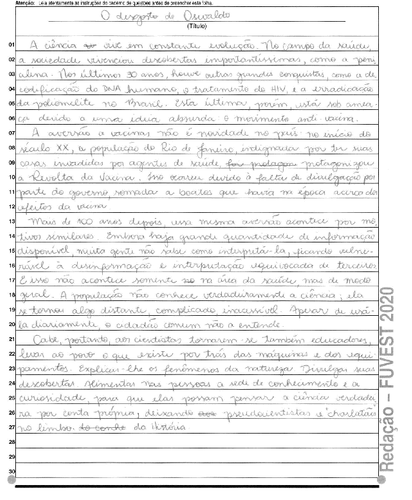 Atenção: Leia atentamente as instruções do caderno de questões antes de preencher esta folha.
O desgosto de Oswaldo
(Título)
01 A ciência vive em constante evolução. No campo da saúde,
02 a sociedade vivenciou descobertas importantíssimas, como a peni
03 cilina. Nos últimos 30 anos, houve outras grandes conquistas como a de
04 codificação do DNA humano, o tratamento do HIV, e a erradicação
05 da poliomelite no Brasil. Esta última, porém, está sob amea
06 ça devido a uma ideia absurda o movimento anti vacina.
07 A aversão a vacinas não é novidade no país no início do
08 século XX, a população do Rio de Janeiro, indignada por ter suas
09 casas invadidas por agentes de saúde, protagonizou
10 a Revolta da Vacina. Isso ocorreu devido à falta de divulgação por
11 parte do governo, somada a boatos que havia na época acerca dos
12 efeitos da vacina
13 Mais de 100 anos depois, essa mesma aversão acontece por mo
14 tivos similares. Embora haja grande quantidade de informação
15 disponível, muita gente não sabe como interpretá-la, ficando vulne
16 rável à desinformação e interpretação equivocada de terceiros
17 E isso não acontece somente na área da saúde, mas de modo
18 geral. A população não conhece verdadeiramente a ciência, ela
19 se tornou algo distante, complicado, inacessível. Apesar de usá-
20 la diariamente, o cidadão comum não a entende.
21 Cabe, portanto, aos cientistas tornarem-se também educadores,
22 levar ao povo o que existe por trás das máquinas e dos equi
23 pamentos. Explicar-lhe os fenômenos da natureza Divulgar suas
24 descobertas Alimentar nas pessoas a sede de conhecimento e a
25 curiosidade, para que elas possam pensar a ciência verdadei
26 ra por conta própria, deixando pseudocientistas e charlatães
27 no limbo da História
28
29
30
Redação – FUVEST 2020